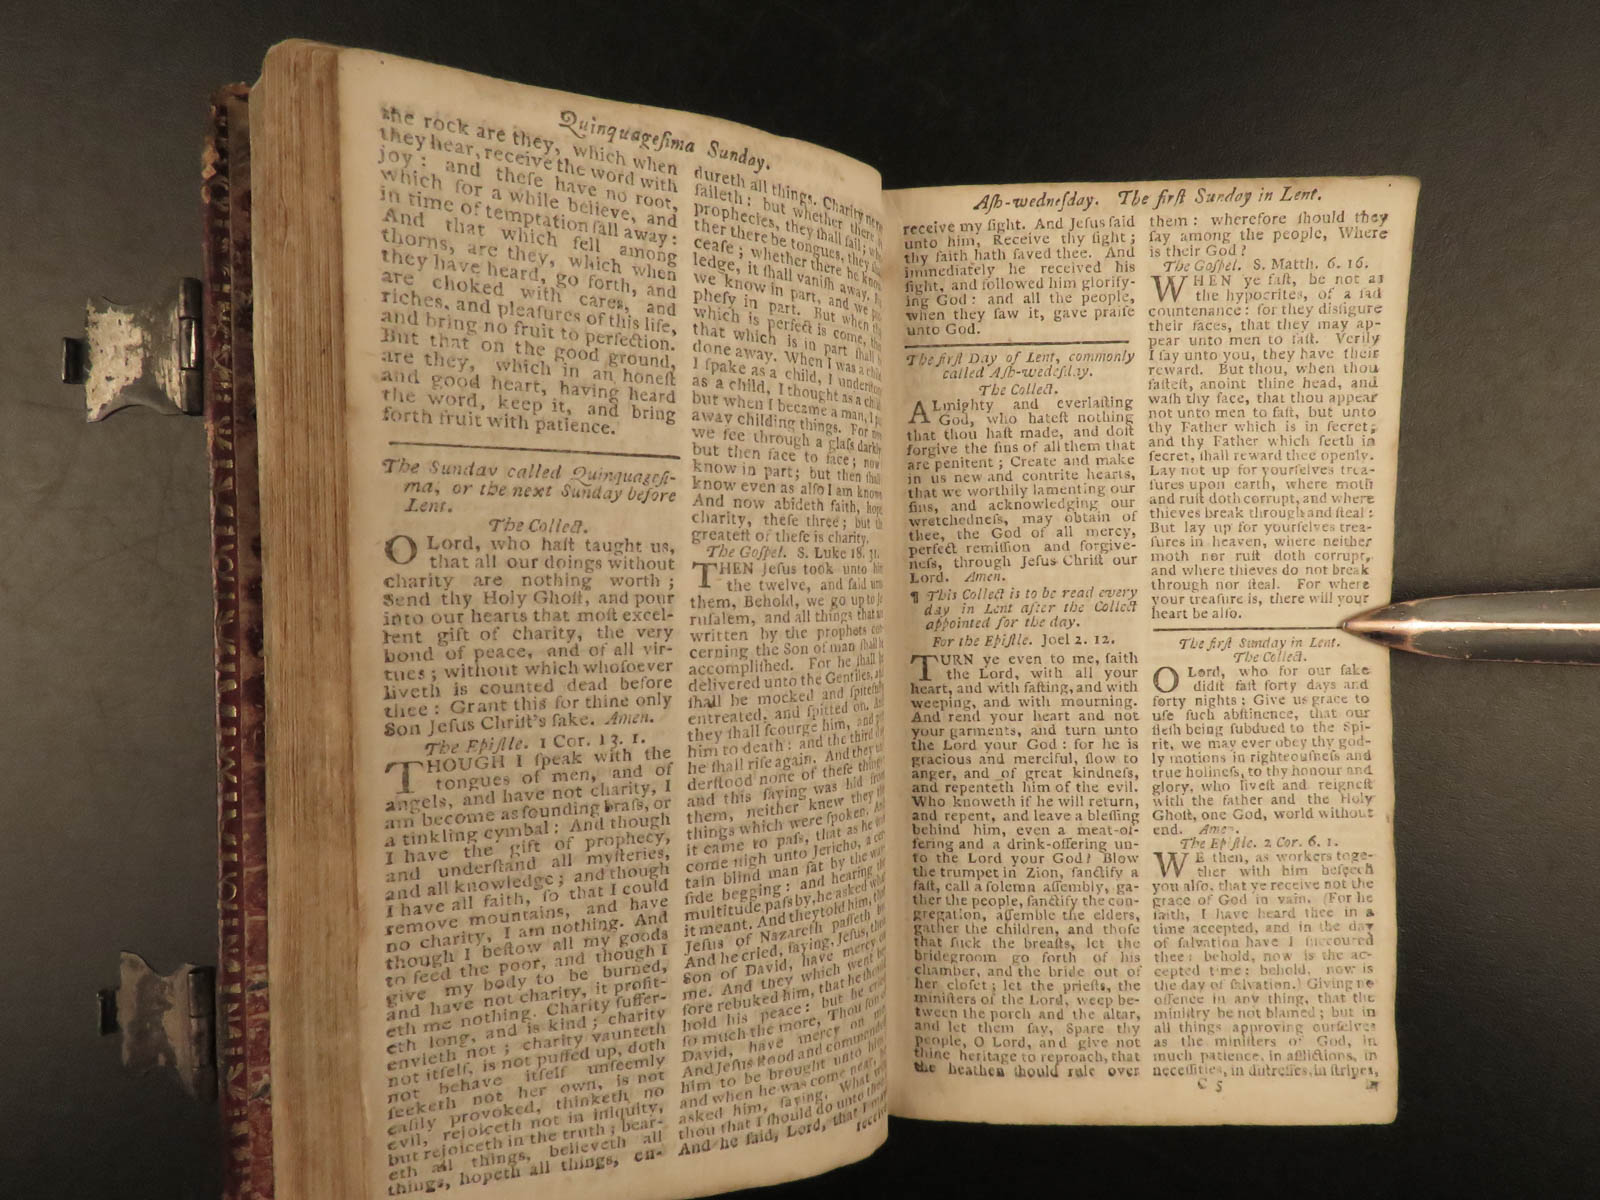 Quinquageſima Sunday.
the rock are they, which when
they hear, receive the word with
joy: and theſe have no root,
which for a while believe, and
in time of temptation fall away:
And that which fell among
thorns, are they, which when
they have heard, go forth, and
are choked with cares, and
riches, and pleaſures of this life,
and bring no fruit to perfection.
But that on the good ground,
are they, which in an honeſt
and good heart, having heard
the word, keep it, and bring
forth fruit with patience.
The Sunday called Quinquageſi-
ma, or the next Sunday before
Lent.
The Collect.
O Lord, who haſt taught us,
that all our doings without
charity are nothing worth;
Send thy Holy Ghoſt, and pour
into our hearts that moſt excel-
lent gift of charity, the very
bond of peace, and of all vir-
tues; without which whoſoever
liveth is counted dead before
thee: Grant this for thine only
Son Jeſus Chriſt's ſake. Amen.
The Epiſtle. 1 Cor. 13. 1.
THOUGH I ſpeak with the
tongues of men, and of
angels, and have not charity, I
am become as ſounding braſs, or
a tinkling cymbal: And though
I have the gift of prophecy,
and underſtand all myſteries,
and all knowledge; and though
I have all faith, ſo that I could
remove mountains, and have
no charity, I am nothing. And
though I beſtow all my goods
to feed the poor, and though I
give my body to be burned,
and have not charity, it profit-
eth me nothing. Charity ſuffer-
eth long, and is kind; charity
envieth not; charity vaunteth
not itſelf, is not puffed up, doth
not behave itſelf unſeemly
ſeeketh not her own, is not
eaſily provoked, thinketh no
evil, rejoiceth not in iniquity,
but rejoiceth in the truth; bear-
eth all things, believeth all
things, hopeth all things, en-
dureth all things. Charity never
faileth: but whether there
prophecies, they ſhall fail;
ther there be tongues, they
ceaſe; whether there be
ledge, it ſhall vaniſh away.
we know in part, and we
pheſy in part. But when
which is perfect is come,
that which is in part ſhall
done away. When I was a
I ſpake as a child, I
as a child, I thought as a
but when I became a man, I
away childing things. For
we ſee through a glaſs darkly
but then face to face; now
know in part; but then ſhall
know even as alſo I am known
And now abideth faith, hope
charity, theſe three; but
greateſt of theſe is charity.
The Goſpel. S. Luke 18. 31.
THEN Jeſus took unto
the twelve, and ſaid
them, Behold, we go up to Je
ruſalem, and all things that
written by the prophets con
cerning the Son of man ſhall
accompliſhed. For he ſhall
delivered unto the Gentiles,
ſhall be mocked and
entreated, and ſpitted on.
they ſhall ſcourge him, and
him to death: and the third
he ſhall riſe again. And they
derſtood none of theſe
and this ſaying was hid from
them, neither knew they
things which were ſpoken.
it came to paſs, that as he
come nigh unto Jericho, a
tain blind man ſat by the
ſide begging: and hearing
multitude paſs by, he asked what
it meant. And they told him,
Jeſus of Nazareth paſſeth
And he cried, ſaying, Jeſus,
Son of David, have mercy
me. And they which went
fore rebuked him, that he ſhould
hold his peace: but he
ſo much the more, Thou ſon
David, have mercy on me.
And Jeſus ſtood and
him to be brought unto
and when he was come near,
asked him, ſaying, What
thou that I ſhould do unto
And he ſaid, Lord, that I may
receive
Aſh-wedneſday. The firſt Sunday in Lent.
receive my ſight. And Jeſus ſaid
unto him, Receive thy ſight;
thy faith hath ſaved thee. And
immediately he received his
ſight, and followed him glorify-
ing God: and all the people,
when they ſaw it, gave praiſe
unto God.
The firſt Day of Lent, commonly
called Aſh-wedeſday.
The Collect.
ALmighty and everlaſting
God, who hateſt nothing
that thou haſt made, and doſt
forgive the ſins of all them that
are penitent; Create and make
in us new and contrite hearts,
that we worthily lamenting our
ſins, and acknowledging our
wretchedneſs, may obtain of
thee, the God of all mercy,
perfect remiſſion and forgive-
neſs, through Jeſus Chriſt our
Lord. Amen.
¶ This Collect is to be read every
day in Lent after the Collect
appointed for the day.
For the Epiſtle. Joel 2. 12.
TURN ye even to me, ſaith
the Lord, with all your
heart, and with faſting, and with
weeping, and with mourning.
And rend your heart and not
your garments, and turn unto
the Lord your God: for he is
gracious and merciful, ſlow to
anger, and of great kindneſs,
and repenteth him of the evil.
Who knoweth if he will return,
and repent, and leave a bleſſing
behind him, even a meat-of-
fering and a drink-offering un-
to the Lord your God? Blow
the trumpet in Zion, ſanctify a
faſt, call a ſolemn aſſembly, ga-
ther the people, ſanctify the con-
gregation, aſſemble the elders,
gather the children, and thoſe
that ſuck the breaſts, let the
bridegroom go forth of his
chamber, and the bride out of
her cloſet; let the prieſts, the
miniſters of the Lord, weep be-
tween the porch and the altar,
and let them ſay, Spare thy
people, O Lord, and give not
thine heritage to reproach, that
the heathen ſhould rule over
them: wherefore ſhould they
ſay among the people, Where
is their God?
The Goſpel. S. Matth. 6. 16.
WHEN ye faſt, be not as
the hypocrites, of a ſad
countenance: for they disfigure
their faces, that they may ap-
pear unto men to faſt. Verily
I ſay unto you, they have their
reward. But thou, when thou
faſteſt, anoint thine head, and
waſh thy face, that thou appear
not unto men to faſt, but unto
thy Father which is in ſecret;
and thy Father which ſeeth in
ſecret, ſhall reward thee openly.
Lay not up for yourſelves trea-
ſures upon earth, where moth
and ruſt doth corrupt, and where
thieves break through and ſteal:
But lay up for yourſelves trea-
ſures in heaven, where neither
moth nor ruſt doth corrupt,
and where thieves do not break
through nor ſteal. For where
your treaſure is, there will your
heart be alſo.
The firſt Sunday in Lent.
The Collect.
O Lord, who for our ſake
didſt faſt forty days and
forty nights; Give us grace to
uſe ſuch abſtinence, that our
fleſh being ſubdued to the Spi-
rit, we may ever obey thy god-
ly motions in righteouſneſs and
true holineſs, to thy honour and
glory, who liveſt and reigneſt
with the father and the Holy
Ghoſt, one God, world without
end. Amen.
The Epiſtle. 2 Cor. 6. 1.
WE then, as workers toge-
ther with him beſeech
you alſo, that ye receive not the
grace of God in vain. (For he
ſaith, I have heard thee in a
time accepted, and in the day
of ſalvation have I ſuccoured
thee: behold, now is the ac-
cepted time: behold, now is
the day of ſalvation.) Giving no
offence in any thing, that the
miniſtry be not blamed; but in
all things approving ourſelves
as the miniſters of God, in
much patience, in afflictions, in
neceſſities, in diſtreſſes, in ſtripes,
C 5
in